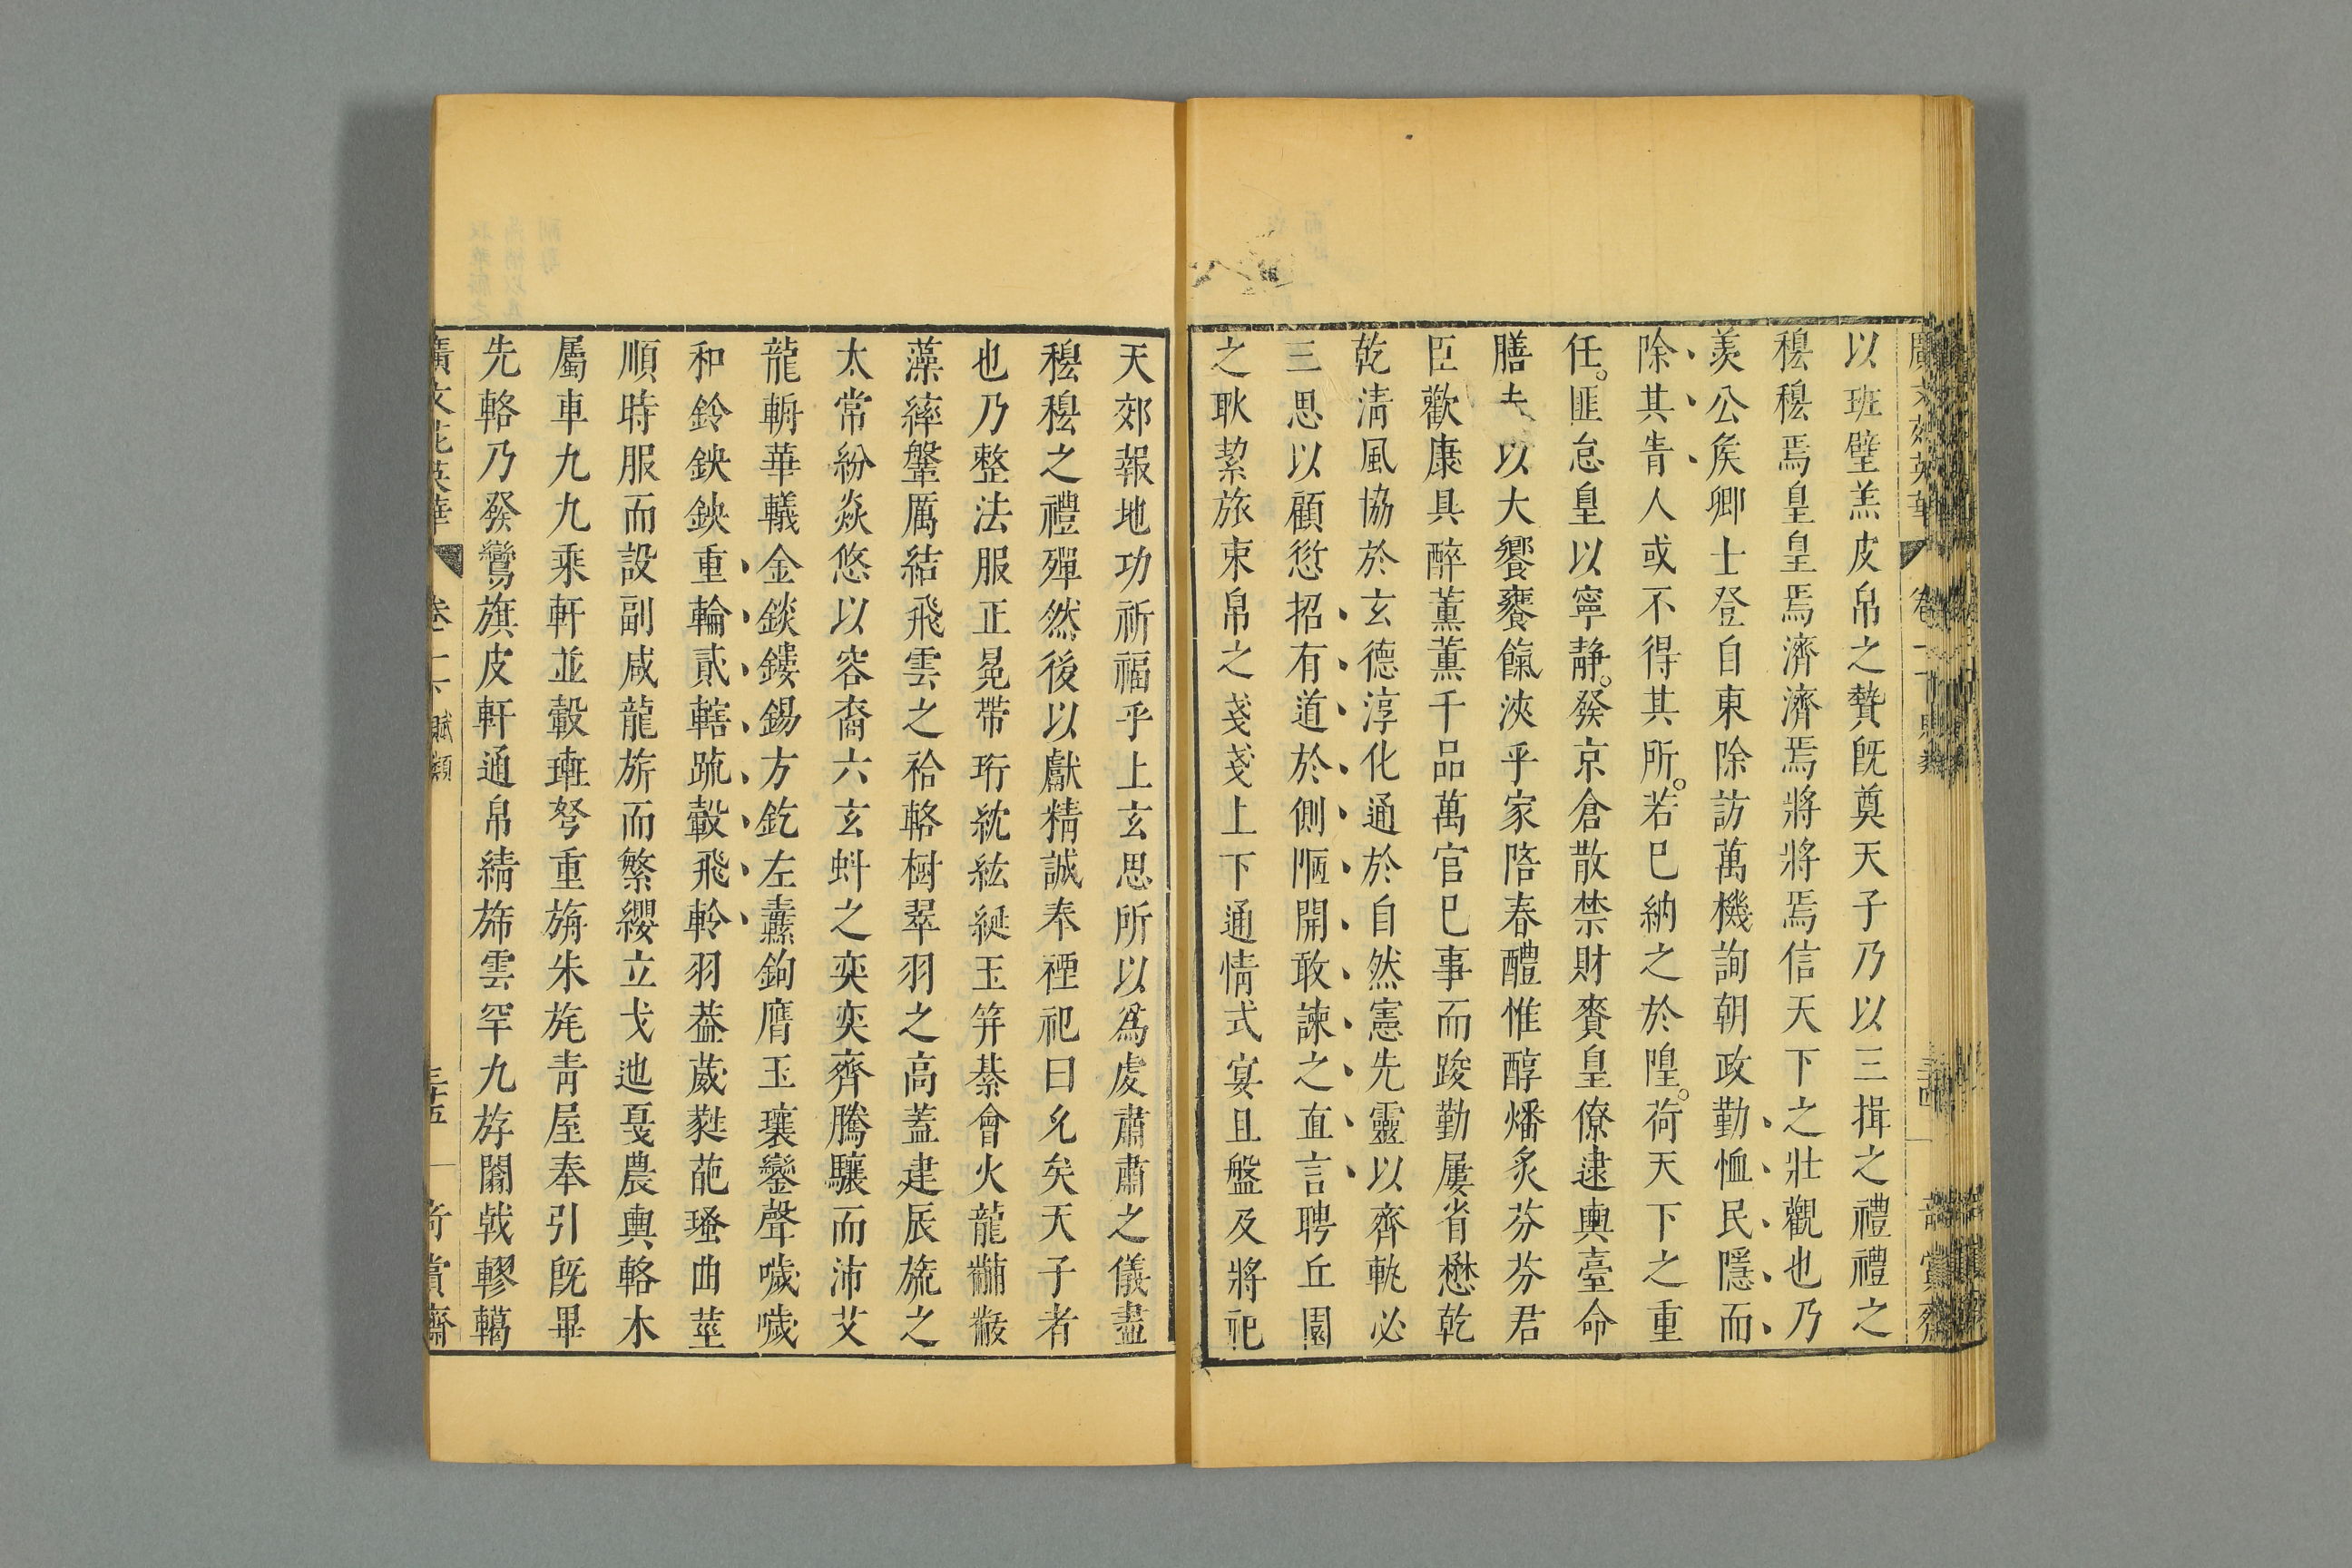 以班璧羔皮帛之贄旣奠天子乃以三揖之禮禮之
穆穆焉皇皇焉濟濟焉將將焉信天下之壯觀也乃
羨公矦卿士登自東除訪萬機詢朝政勤恤民隱而
除其眚人或不得其所。若已納之於隍。荷天下之重
任。匪怠皇以寧靜。發京倉散禁財賚皇僚逮輿臺命
膳夫以大饗饔餼浹乎家陪春醴惟醇燔炙芬芬君
臣歡康具醉薰薰千品萬官已事而踆勤屢省懋乾
乾清風協於玄德淳化通於自然憲先靈以齊軌必
三思以顧愆招有道於側陋開敢諫之直言聘丘園
之耿絜旅束帛之戔戔上下通情式宴且盤及將祀
天郊報地功祈福乎上玄思所以爲虔肅肅之儀盡
穆穆之禮殫然後以獻精誠奉禋祀曰允矣天子者
也乃整法服正冕帶珩紞紘綖玉笄綦會火龍黼黻
藻繂鞶厲結飛雲之袷輅樹翠羽之高蓋建辰旒之
太常紛焱悠以容裔六玄虯之奕奕齊騰驤而沛艾
龍輈華轙金鋄鏤鍚方釳左纛鉤膺玉瓖鑾聲噦噦
和鈴鉠鉠重輪貳轄疏轂飛軨羽葢葳蕤葩瑵曲莖
順時服而設副咸龍旂而繁纓立戈迆戛農輿輅木
屬車九九乘軒並轂㻑弩重旃朱旄青屋奉引旣畢
先輅乃發鸞旗皮軒通帛綪斾雲罕九斿闟戟轇轕
廣文苑英華 卷二 賦類 三十五 奇賞齋